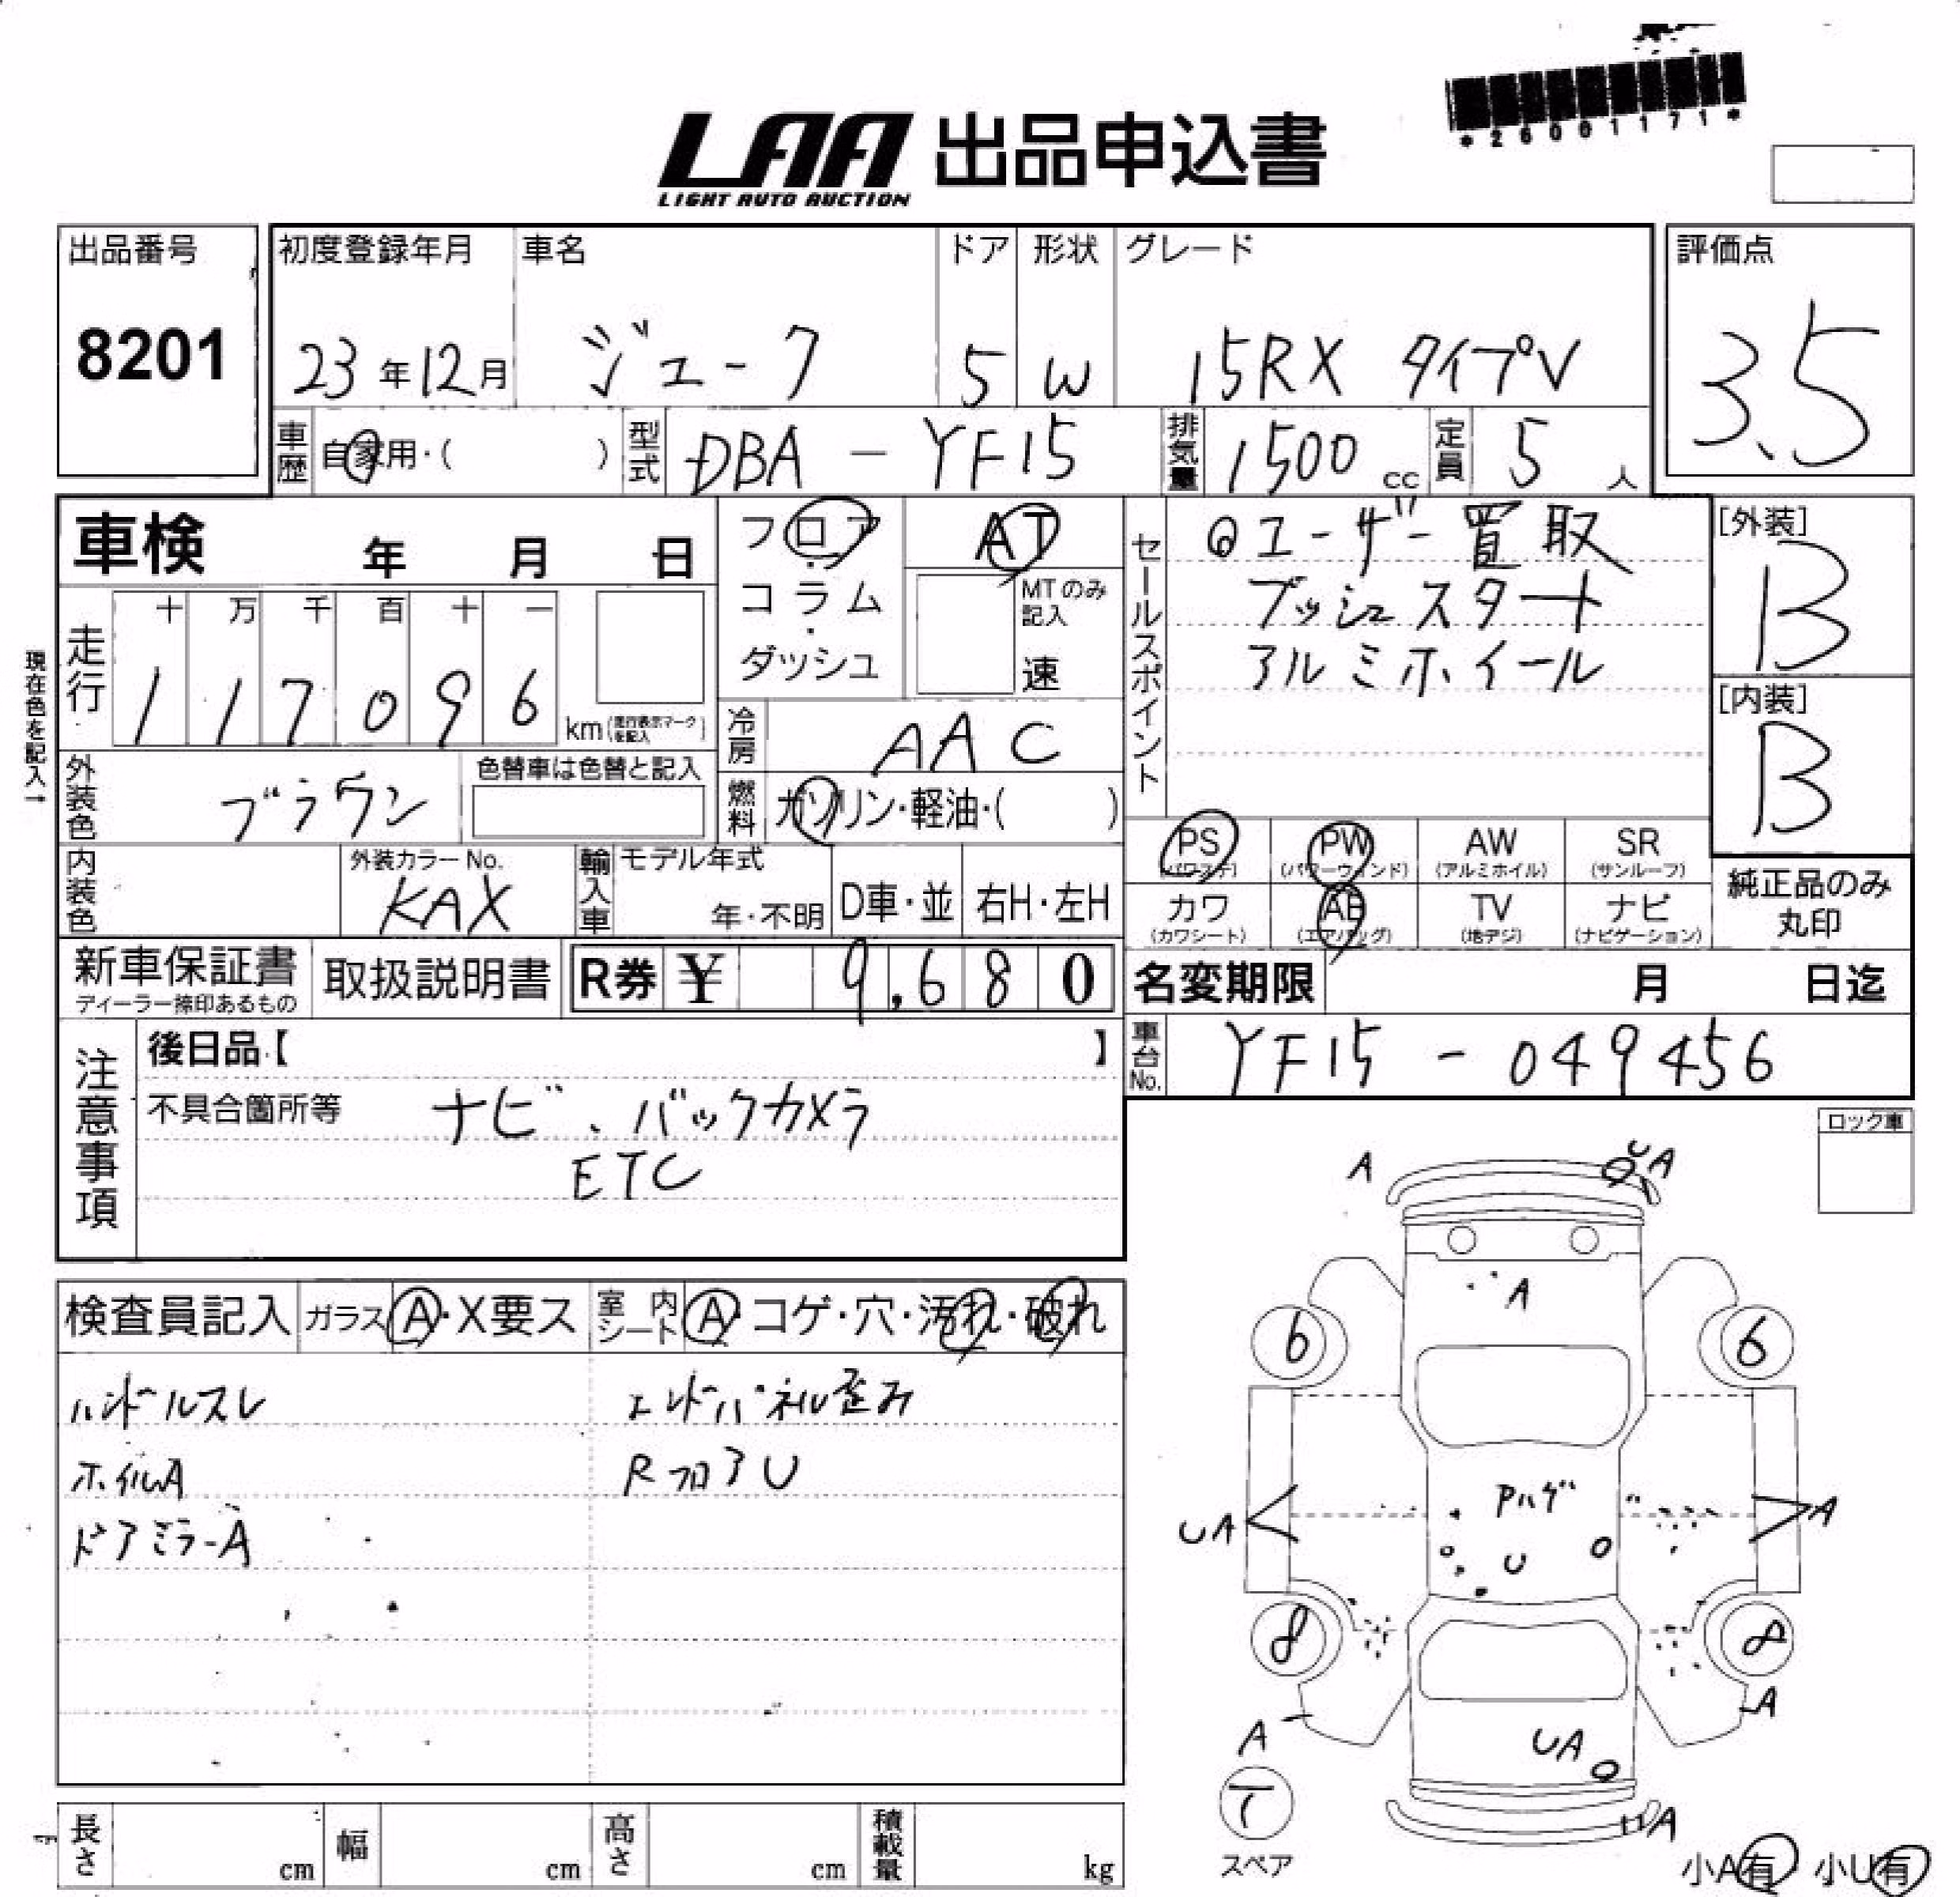 *26001171*
LAA 出品申込書
LIGHT AUTO AUCTION
出品番号
8201
初度登録年月
23年12月
車名
ジューク
ドア
5
形状
W
グレード
15RX タイプV
評価点
3.5
車歴
自家用・( )
型式
DBA-YF15
排気量
1500 cc
定員
5 人
車検 年 月 日
フロア・コラム・ダッシュ
AT
MTのみ記入
速
セールスポイント
◎ユーザー買取
プッシュスタート
アルミホイール
[外装]
B
[内装]
B
現在色を記入→
走行
十 万 千 百 十 一
1 1 7 0 9 6
km(走行表示マークを記入)
冷房
AAC
外装色
ブラウン
色替車は色替と記入
燃料
ガソリン・軽油・( )
内装色
外装カラーNo.
KAX
輸入車
モデル年式
年・不明
D車・並
右H・左H
PS
(パワステ)
PW
(パワーウィンド)
AW
(アルミホイル)
SR
(サンルーフ)
カワ
(カワシート)
AB
(エアバッグ)
TV
(地デジ)
ナビ
(ナビゲーション)
純正品のみ
丸印
新車保証書
ディーラー捺印あるもの
取扱説明書
R券 ¥ 9,680
名変期限 月 日迄
車台No.
YF15-049456
注意事項
後日品【 】
不具合箇所等
ナビ、バックカメラ
ETC
ロック車
検査員記入
ガラス A・X要ス
室内シート A・コゲ・穴・汚れ・破れ
ハンドルスレ
ホイルA
ドアミラーA
エンドパネル歪み
RフロアU
A
UA
A
6
6
Pハゲ
UA
A
U
8
8
A
A
UA
T
スペア
A
小A有 小U有
長さ cm
幅 cm
高さ cm
積載量 kg